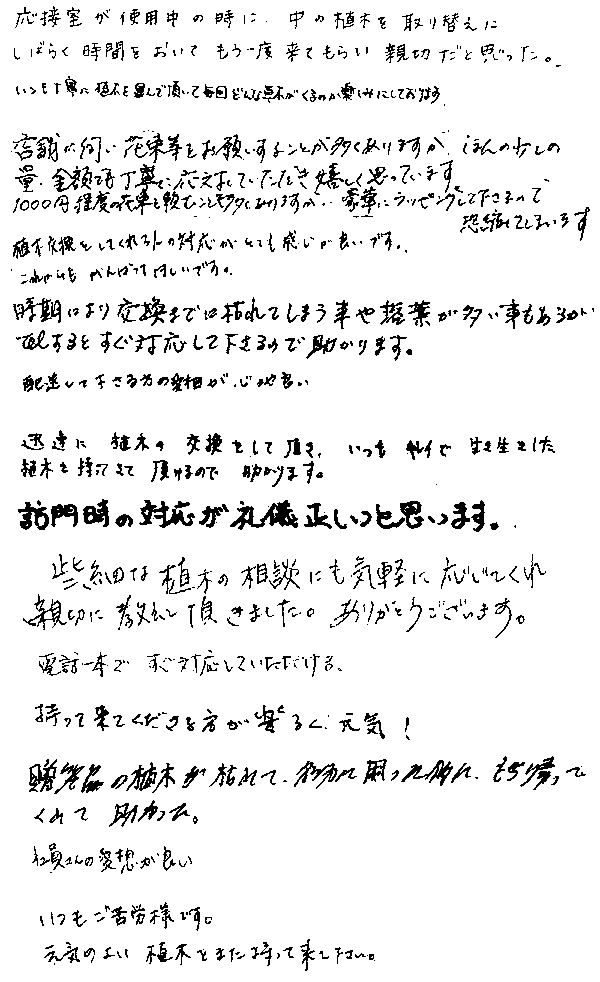 応接室が使用中の時に、中の植木を取り替えに
しばらく時間をおいてもう一度来てもらい親切だと思った。
いつも丁寧に植木を選んで頂いて毎回どんな草木がくるのか楽しみにしております
店舗に伺い花束等をお願いすることが多くありますが、ほんの少しの
量、金額でも丁寧に応えましていただき嬉しく思っています
1000円程度の花束を頼むことも多々ありますが、豪華にラッピングして下さるので
恐縮してしまいます
植木交換をしてくれる人の対応がとても感じが良いです。
これからもがんばってほしいです。
時期により交換までに枯れてしまう事や落葉が多い事もあるが、
TELするとすぐ対応して下さるので助かります。
配達して下さる方の愛想が、心地良い
迅速に植木の交換をして頂き、いつもキレイで生き生きした
植木を持ってきて頂けるので助かります。
訪問時の対応が礼儀正しいと思います。
些細な植木の相談にも気軽に応じてくれ
親切に教えて頂きました。ありがとうございます。
電話一本ですぐ対応していただける。
持って来てくださる方が明るく元気!
贈答品の植木が枯れて、処分に困った時に、もち帰って
くれて助かった。
社員さんの愛想が良い
いつもご苦労様です。
元気のよい植木をまた持って来て下さい。